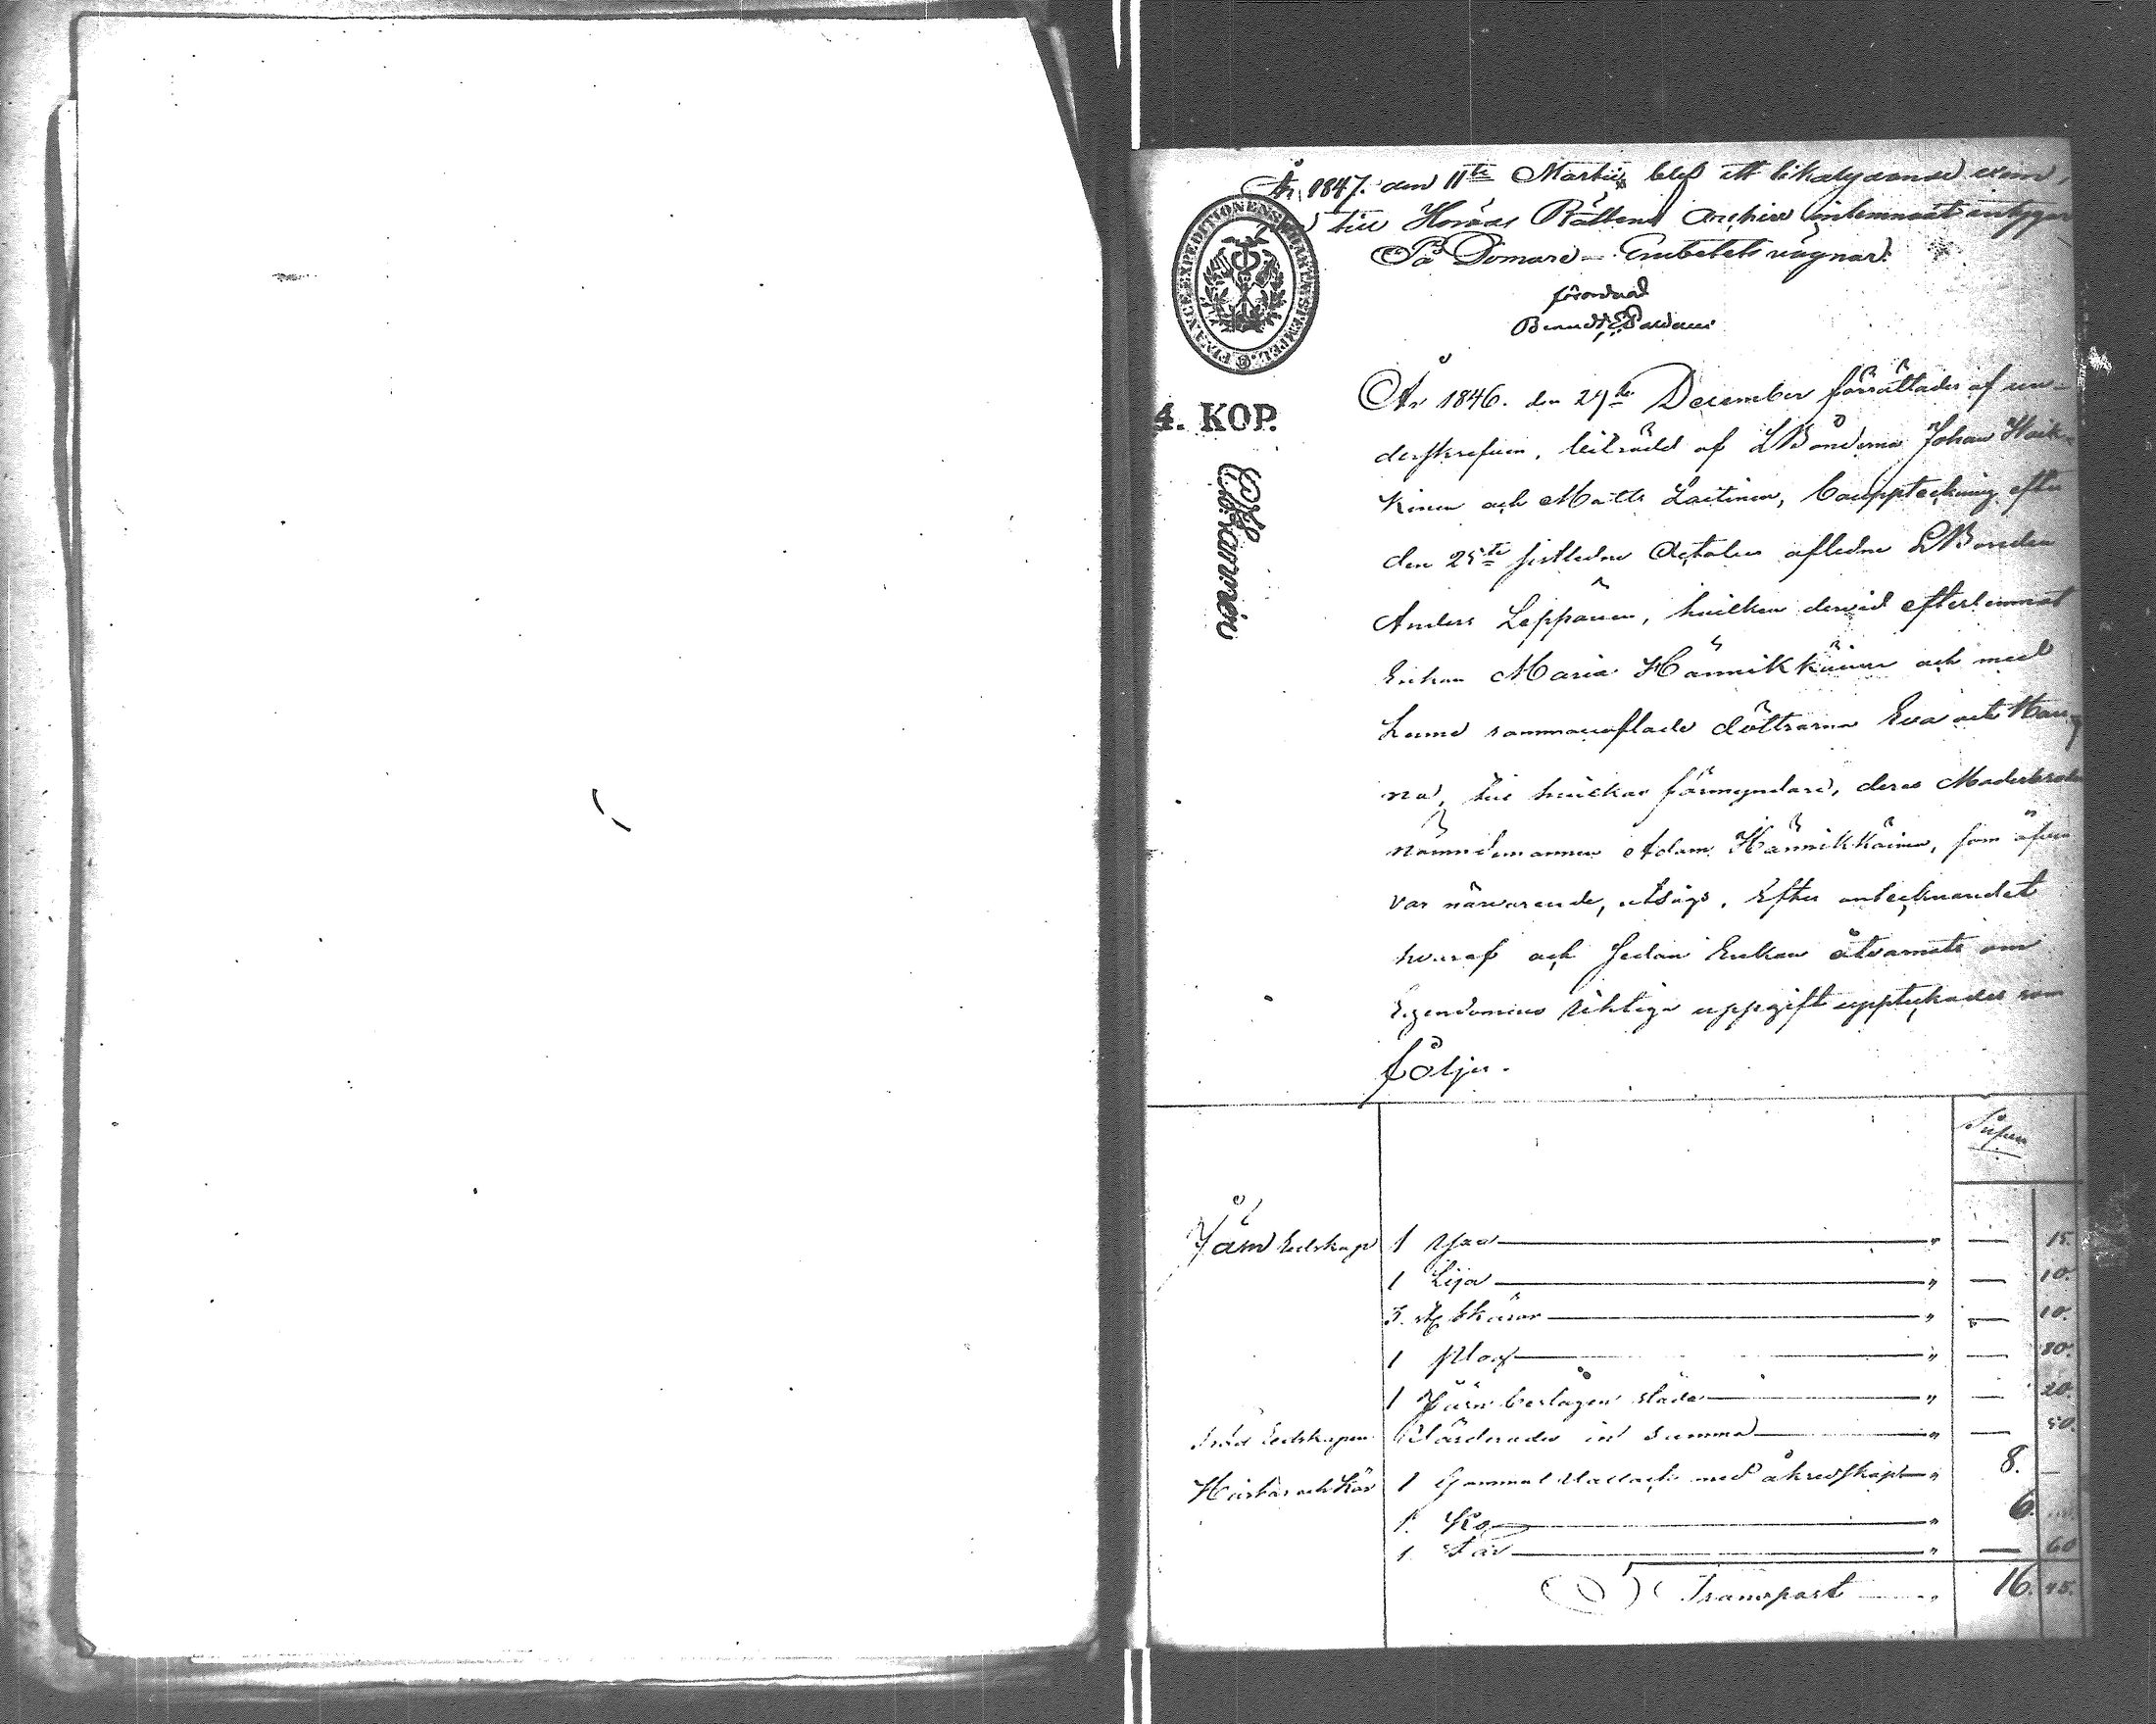 År 1847. den 11te Martii blef ett likalydande exem,
till Härads Rättens Archiv inlemnadt intygar
På Domare-Embetets vägnar:
förordnad
FINANCE EXPEDITIONENS CHARTÆ STEMPEL.
4. KOP.
År 1846. den 29de December förrättades af un-
derskrefven, biträdd af LBönderna Johan Heik-
kinen och Matts Laitinen, bouppteckning efter
den 25te sistledne October aflidne LBonden
Anders Leppänen, hvilken dervid efterlemnat
Enkan Maria Hännikkäinen och med
henne sammanaflade döttrarna Eva och Han-
na, till hvilkas förmyndare, deras Moderbroder
Nämndemannen Adam Hännikkäinen, som äfven
var närvarande, utsågs. Efter antecknandet
hvaraf och sedan Enkan åtvarnats om
Egendomens riktiga uppgift upptecknades som
följer.
Silfver
Järn Redskap 1 Yxa " — 15.
1 Lija " — 10.
3. st Skäror " — 10.
1 Plog " — 80.
1 Järn beslagen släde " — 20.
Träd Redskapen Värderades in summa " — 50.
Hästar och Kor 1 Gammal Vallack med åkredskap " 8. —
1. Ko " 6. —
1. Får " — 60
Transport " 16. 45.